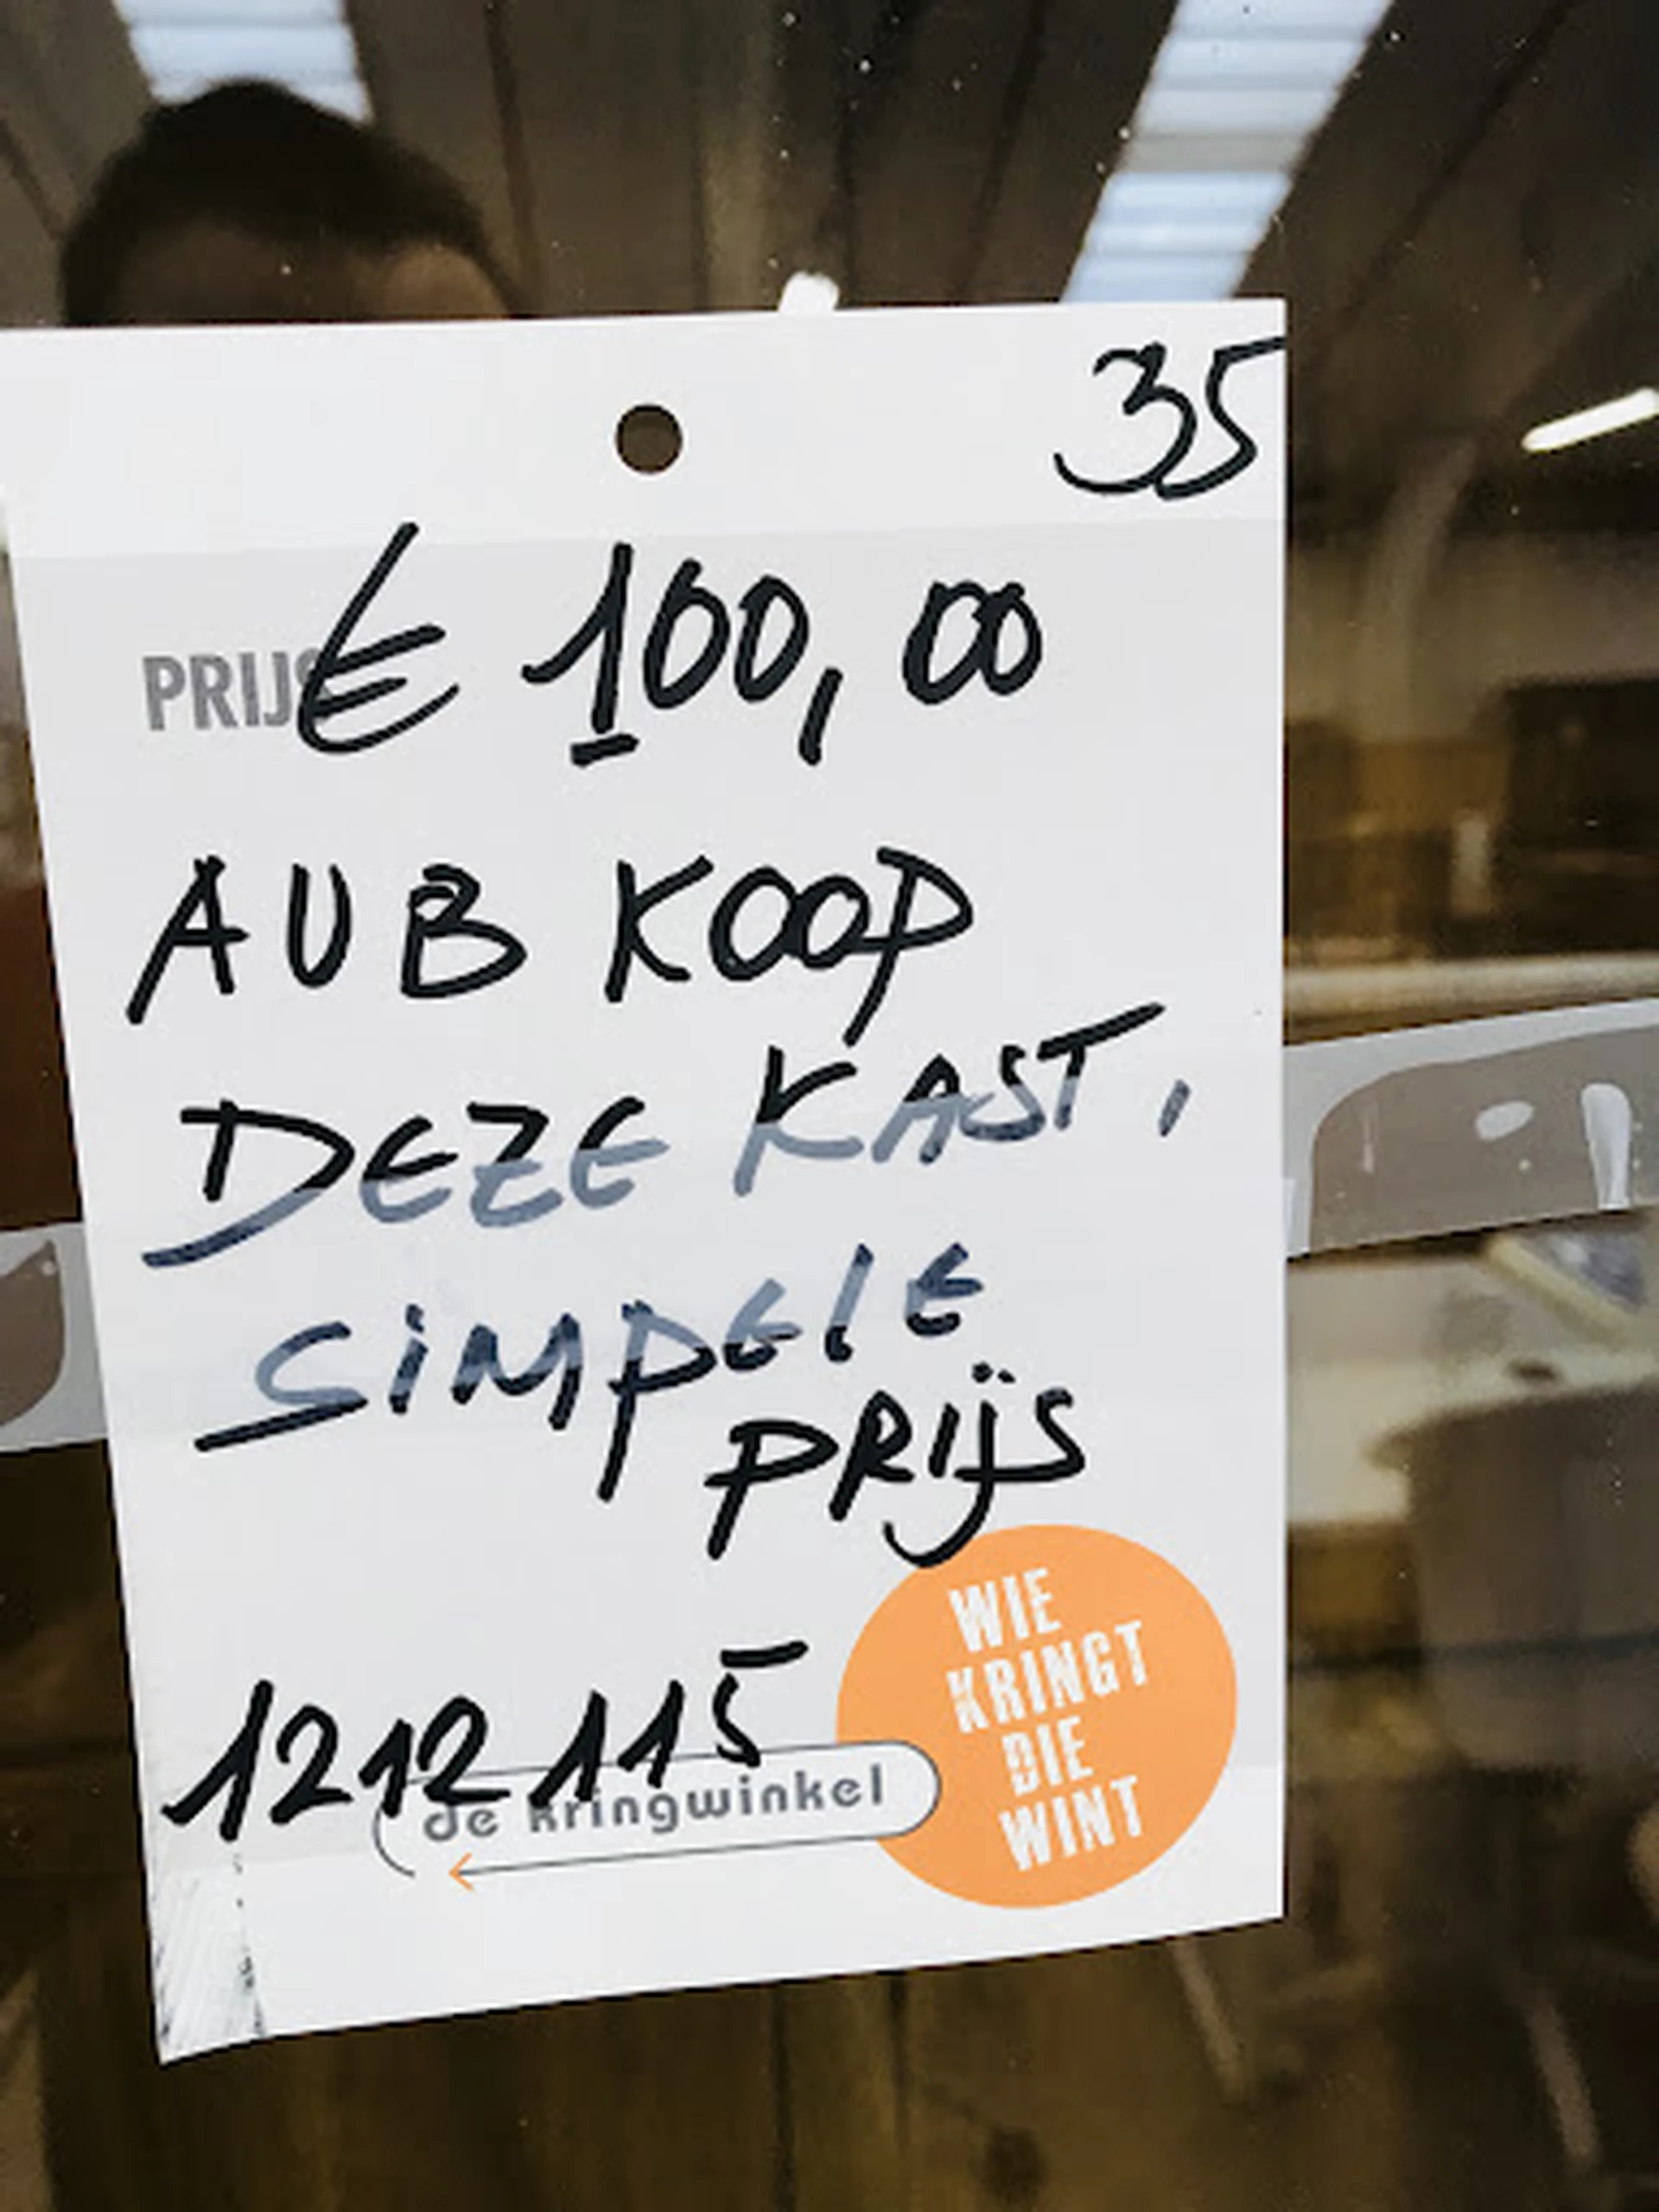 35
PRIJS € 100,00
AUB KOOP
DEZE KAST,
SIMPELE
PRIJS
1212115
de kringwinkel
WIE
KRINGT
DIE
WINT